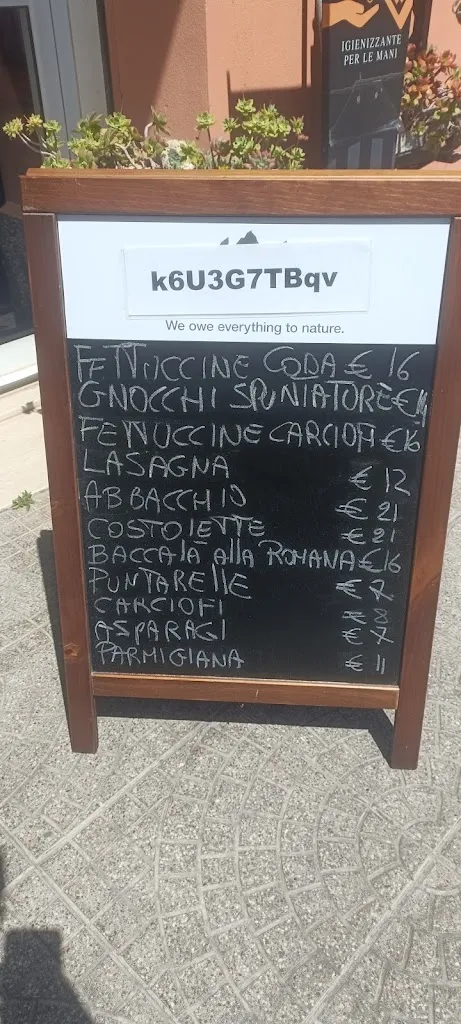 IGIENIZZANTE
PER LE MANI
k6U3G7TBqv
We owe everything to nature.
FETTUCCINE CODA € 16
GNOCCHI SPUNIATORE €14
FETTUCCINE CARCIOFI €16
LASAGNA € 12
ABBACCHIO € 21
COSTOLETTE € 21
BACCALÀ ALLA ROMANA €16
PUNTARELLE € 7
CARCIOFI € 8
ASPARAGI € 7
PARMIGIANA € 11